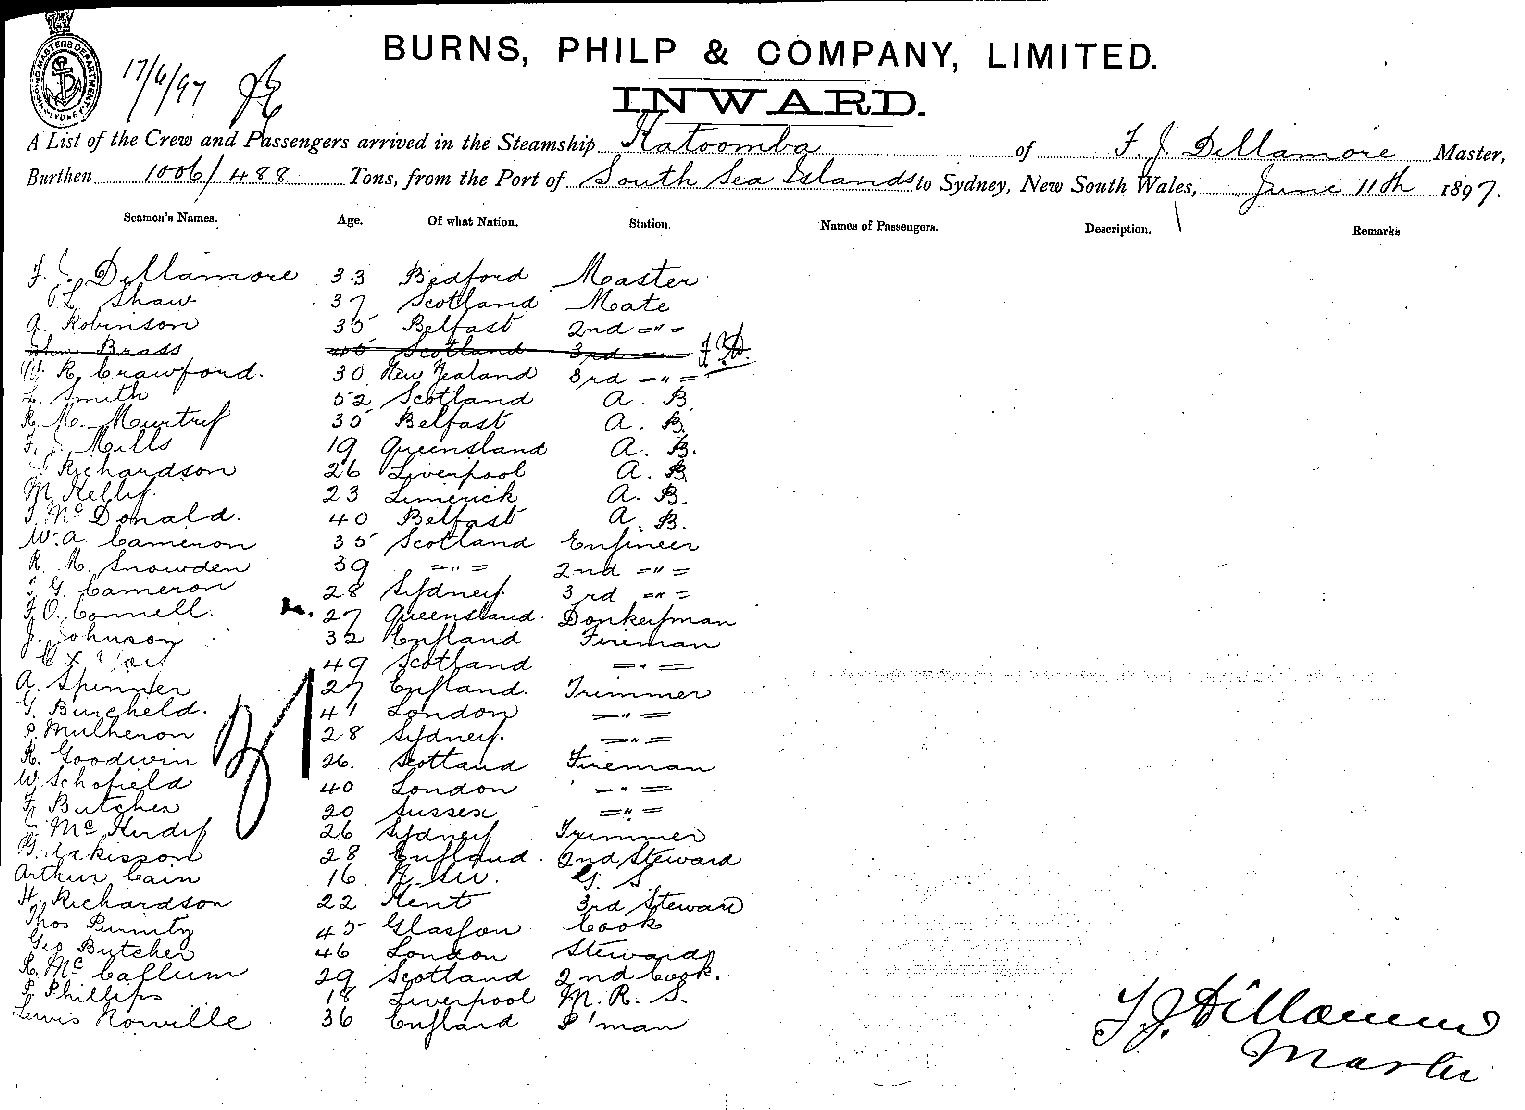 BURNS, PHILP & COMPANY, LIMITED.
17/6/97
INWARD.
A List of the Crew and Passengers arrived in the Steamship Katoomba of F. J. Dellamore Master,
Burthen 1006/488 Tons, from the Port of South Sea Islands to Sydney, New South Wales, June 11th 1897.
Seamen's Names. Age. Of what Nation. Station. Names of Passengers. Description. Remarks
F. J. Dellamore 33 Bedford Master
Shaw 37 Scotland Mate
A. Robinson 35 Belfast 2nd -"-
Brass 45 Scotland 3rd
R. Crawford. 30 New Zealand 3rd -"-
L. Smith 52 Scotland A. B.
R. Mc. Murtrif 35 Belfast A. B.
F. J. Mills 19 Queensland A. B.
Richardson 26 Liverpool A. B.
M. Kelly. 23 Limerick A. B.
Mc Donald. 40 Belfast A. B.
W. A. Cameron 35 Scotland Engineer
R. R. Snowden 39 -"- 2nd -"-
G. Cameron 28 Sydney. 3rd -"-
F. O. Connell. 27 Queensland. Donkeyman
J. Johnson 32 England Fireman
49 Scotland -"-
A. Spinner 27 England. Trimmer
G. Burcheld. 41 London -"-
P. Mulheron 28 Sydney. -"-
R. Goodwin 26. Scotland Fireman
W. Schofield 40 London -"-
F. Butcher 20 Sussex -"-
Mc Hirdy 26 Sydney Trimmer
28 England. 2nd Steward
Arthur Cain 16 G. S
H. Richardson 22 Kent 3rd Steward
Thos 45 Glasgow Cook
Geo Butcher 46 London Steward
R. Mc Callum 29 Scotland 2nd Cook.
P. Phillips 18 Liverpool M. R. S.
Lewis Norville 36 England F'man
F. J. Dellamore
Master